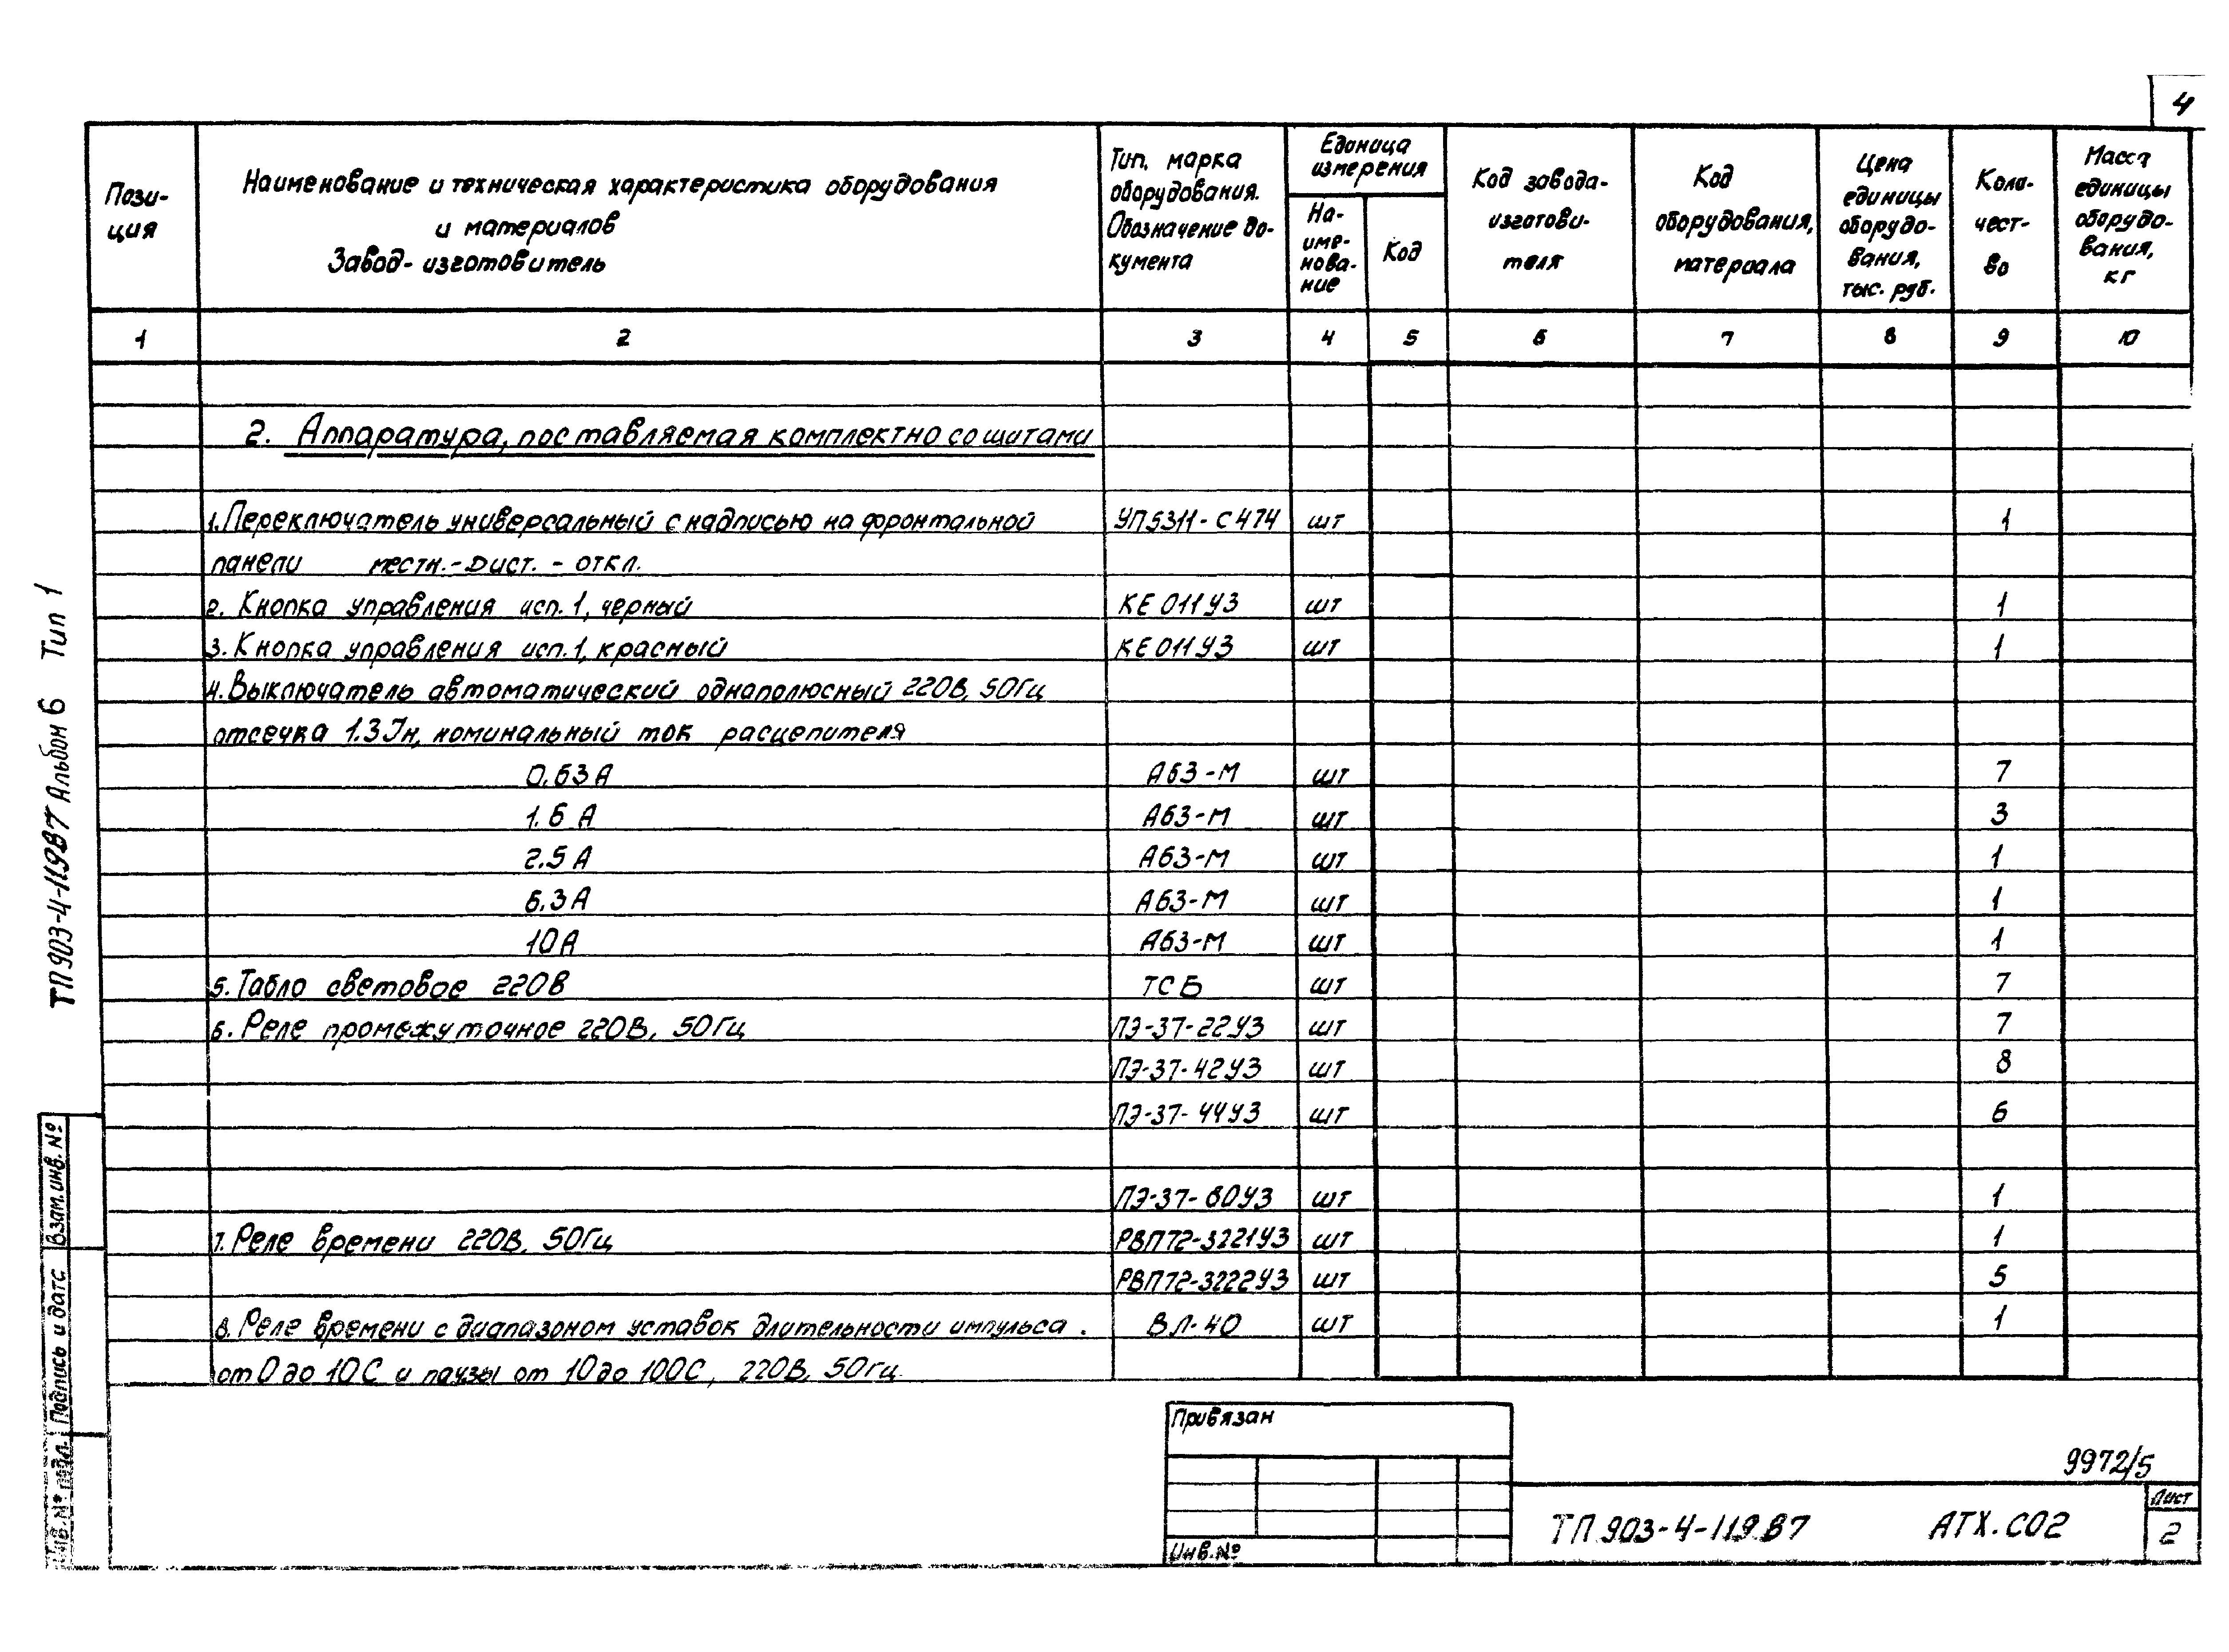 4
Пози-
ция
Наименование и техническая характеристика оборудования
и материалов
Завод-изготовитель
Тип, марка
оборудования.
Обозначение до-
кумента
Единица
измерения
На-
име-
нова-
ние
Код
Код завода-
изготови-
теля
Код
оборудования,
материала
Цена
единицы
оборудо-
вания,
тыс. руб.
Коли-
чест-
во
Масса
единицы
оборудо-
вания,
кг
1 2 3 4 5 6 7 8 9 10
2. Аппаратура, поставляемая комплектно со щитами
1. Переключатель универсальный с надписью на фронтальной УП5311-С474 шт 1
панели местн.-Дист.-откл.
2. Кнопка управления исп.1, черный КЕ 011У3 шт 1
3. Кнопка управления исп.1, красный КЕ 011У3 шт 1
4. Выключатель автоматический однополюсный 220В, 50Гц
отсечка 1.3Iн, номинальный ток расцепителя
0.63А А63-М шт 7
1.6 А А63-М шт 3
2.5 А А63-М шт 1
6.3А А63-М шт 1
10А А63-М шт 1
5. Табло световое 220В ТСБ шт 7
6. Реле промежуточное 220В, 50Гц ПЭ-37-22У3 шт 7
ПЭ-37-42У3 шт 8
ПЭ-37-44У3 шт 6
ПЭ-37-80У3 шт 1
7. Реле времени 220В, 50Гц РВП72-3221У3 шт 1
РВП72-3222У3 шт 5
8. Реле времени с диапазоном уставок длительности импульса ВЛ-40 шт 1
от 0 до 10С и паузы от 10 до 100С, 220В, 50Гц
ТП903-4-119.87 Альбом 6 Тип 1
Взам.инв.№
Подпись и дата
Инв.№ подл.
Привязан
Инв.№
9972/5
ТП 903-4-119.87 АТХ.СО2
Лист
2